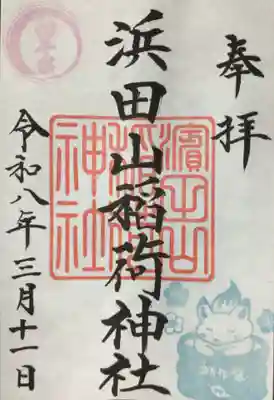 奉拝
浜田山稲荷神社
濱田山稲荷神社
令和八年三月十一日